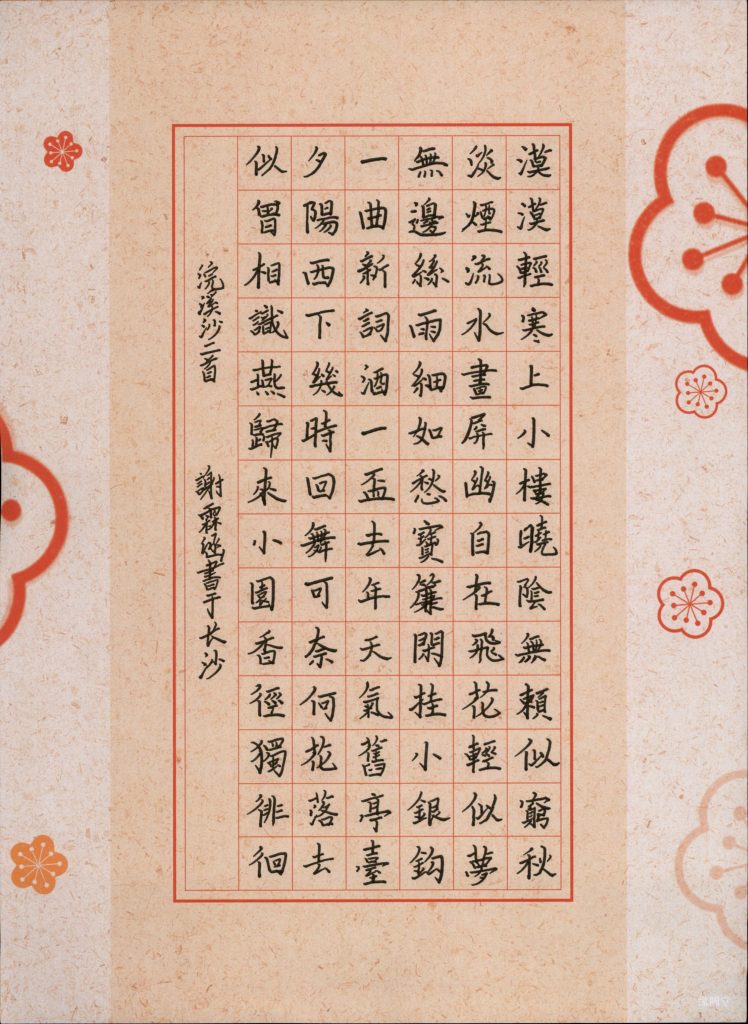 漠漠輕寒上小樓曉陰無賴似窮秋
淡煙流水畫屏幽自在飛花輕似夢
無邊絲雨細如愁寶簾閑挂小銀鈎
一曲新詞酒一盃去年天氣舊亭臺
夕陽西下幾時回舞可奈何花落去
似曾相識燕歸來小園香徑獨徘徊
浣溪沙二首 謝霖書于长沙